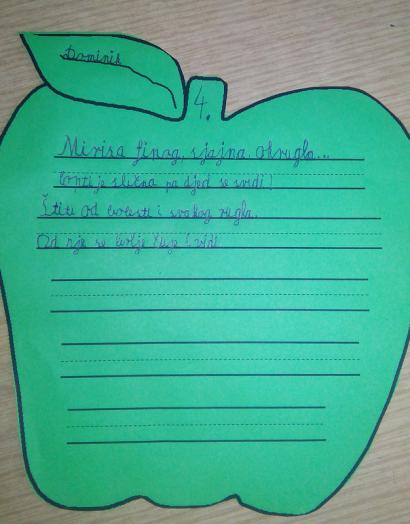 Dominik
4.
Mirisa finog, sjajna, okrugla...
lopti je slična pa djed se svidi!
Štiti od bolesti i svakog rugla.
Od nje se bolje čuje i vidi